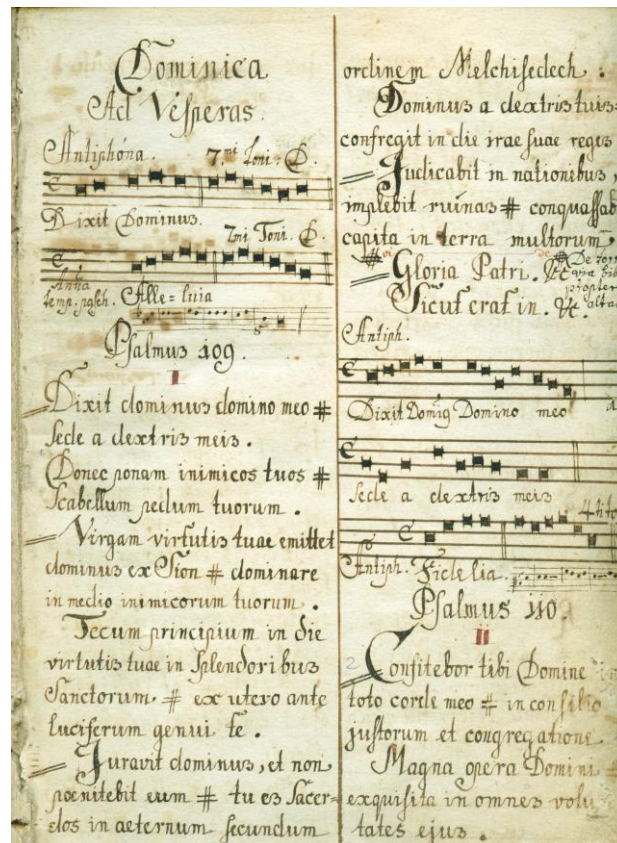 Dominica
Ad Vesperas.
Antiphona. 7.mi Toni. D.
Dixit Dominus. 7mi Toni. D.
Anna
temp. pasch. Alle=luia
Psalmus 109.
I
Dixit dominus domino meo #
sede a dextris meis.
Donec ponam inimicos tuos #
scabellum pedum tuorum.
Virgam virtutis tuae emittet
dominus ex Sion # dominare
in medio inimicorum tuorum.
Tecum principium in die
virtutis tuae in splendoribus
Sanctorum # ex utero ante
luciferum genui te.
Juravit dominus, et non
poenitebit eum # tu es Sacer=
dos in aeternum secundum
ordinem Melchisedech.
Dominus a dextris tuis #
confregit in die irae suae reges
Judicabit in nationibus,
implebit ruinas # conquassab
capita in terra multorum.
Gloria Patri. &c
Sicut erat in. &c
De torr
propter
Antiph.
Dixit Domi9 Domino meo
sede a dextris meis
4ti to
Antiph. Fidelia
Psalmus 110.
II
2 Confitebor tibi Domine in
toto corde meo # in consilio
justorum et congregatione.
Magna opera Domini #
exquisita in omnes volu
tates ejus.